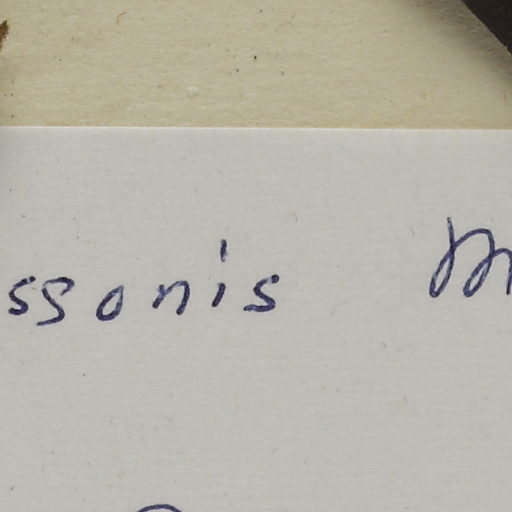 ssonis M